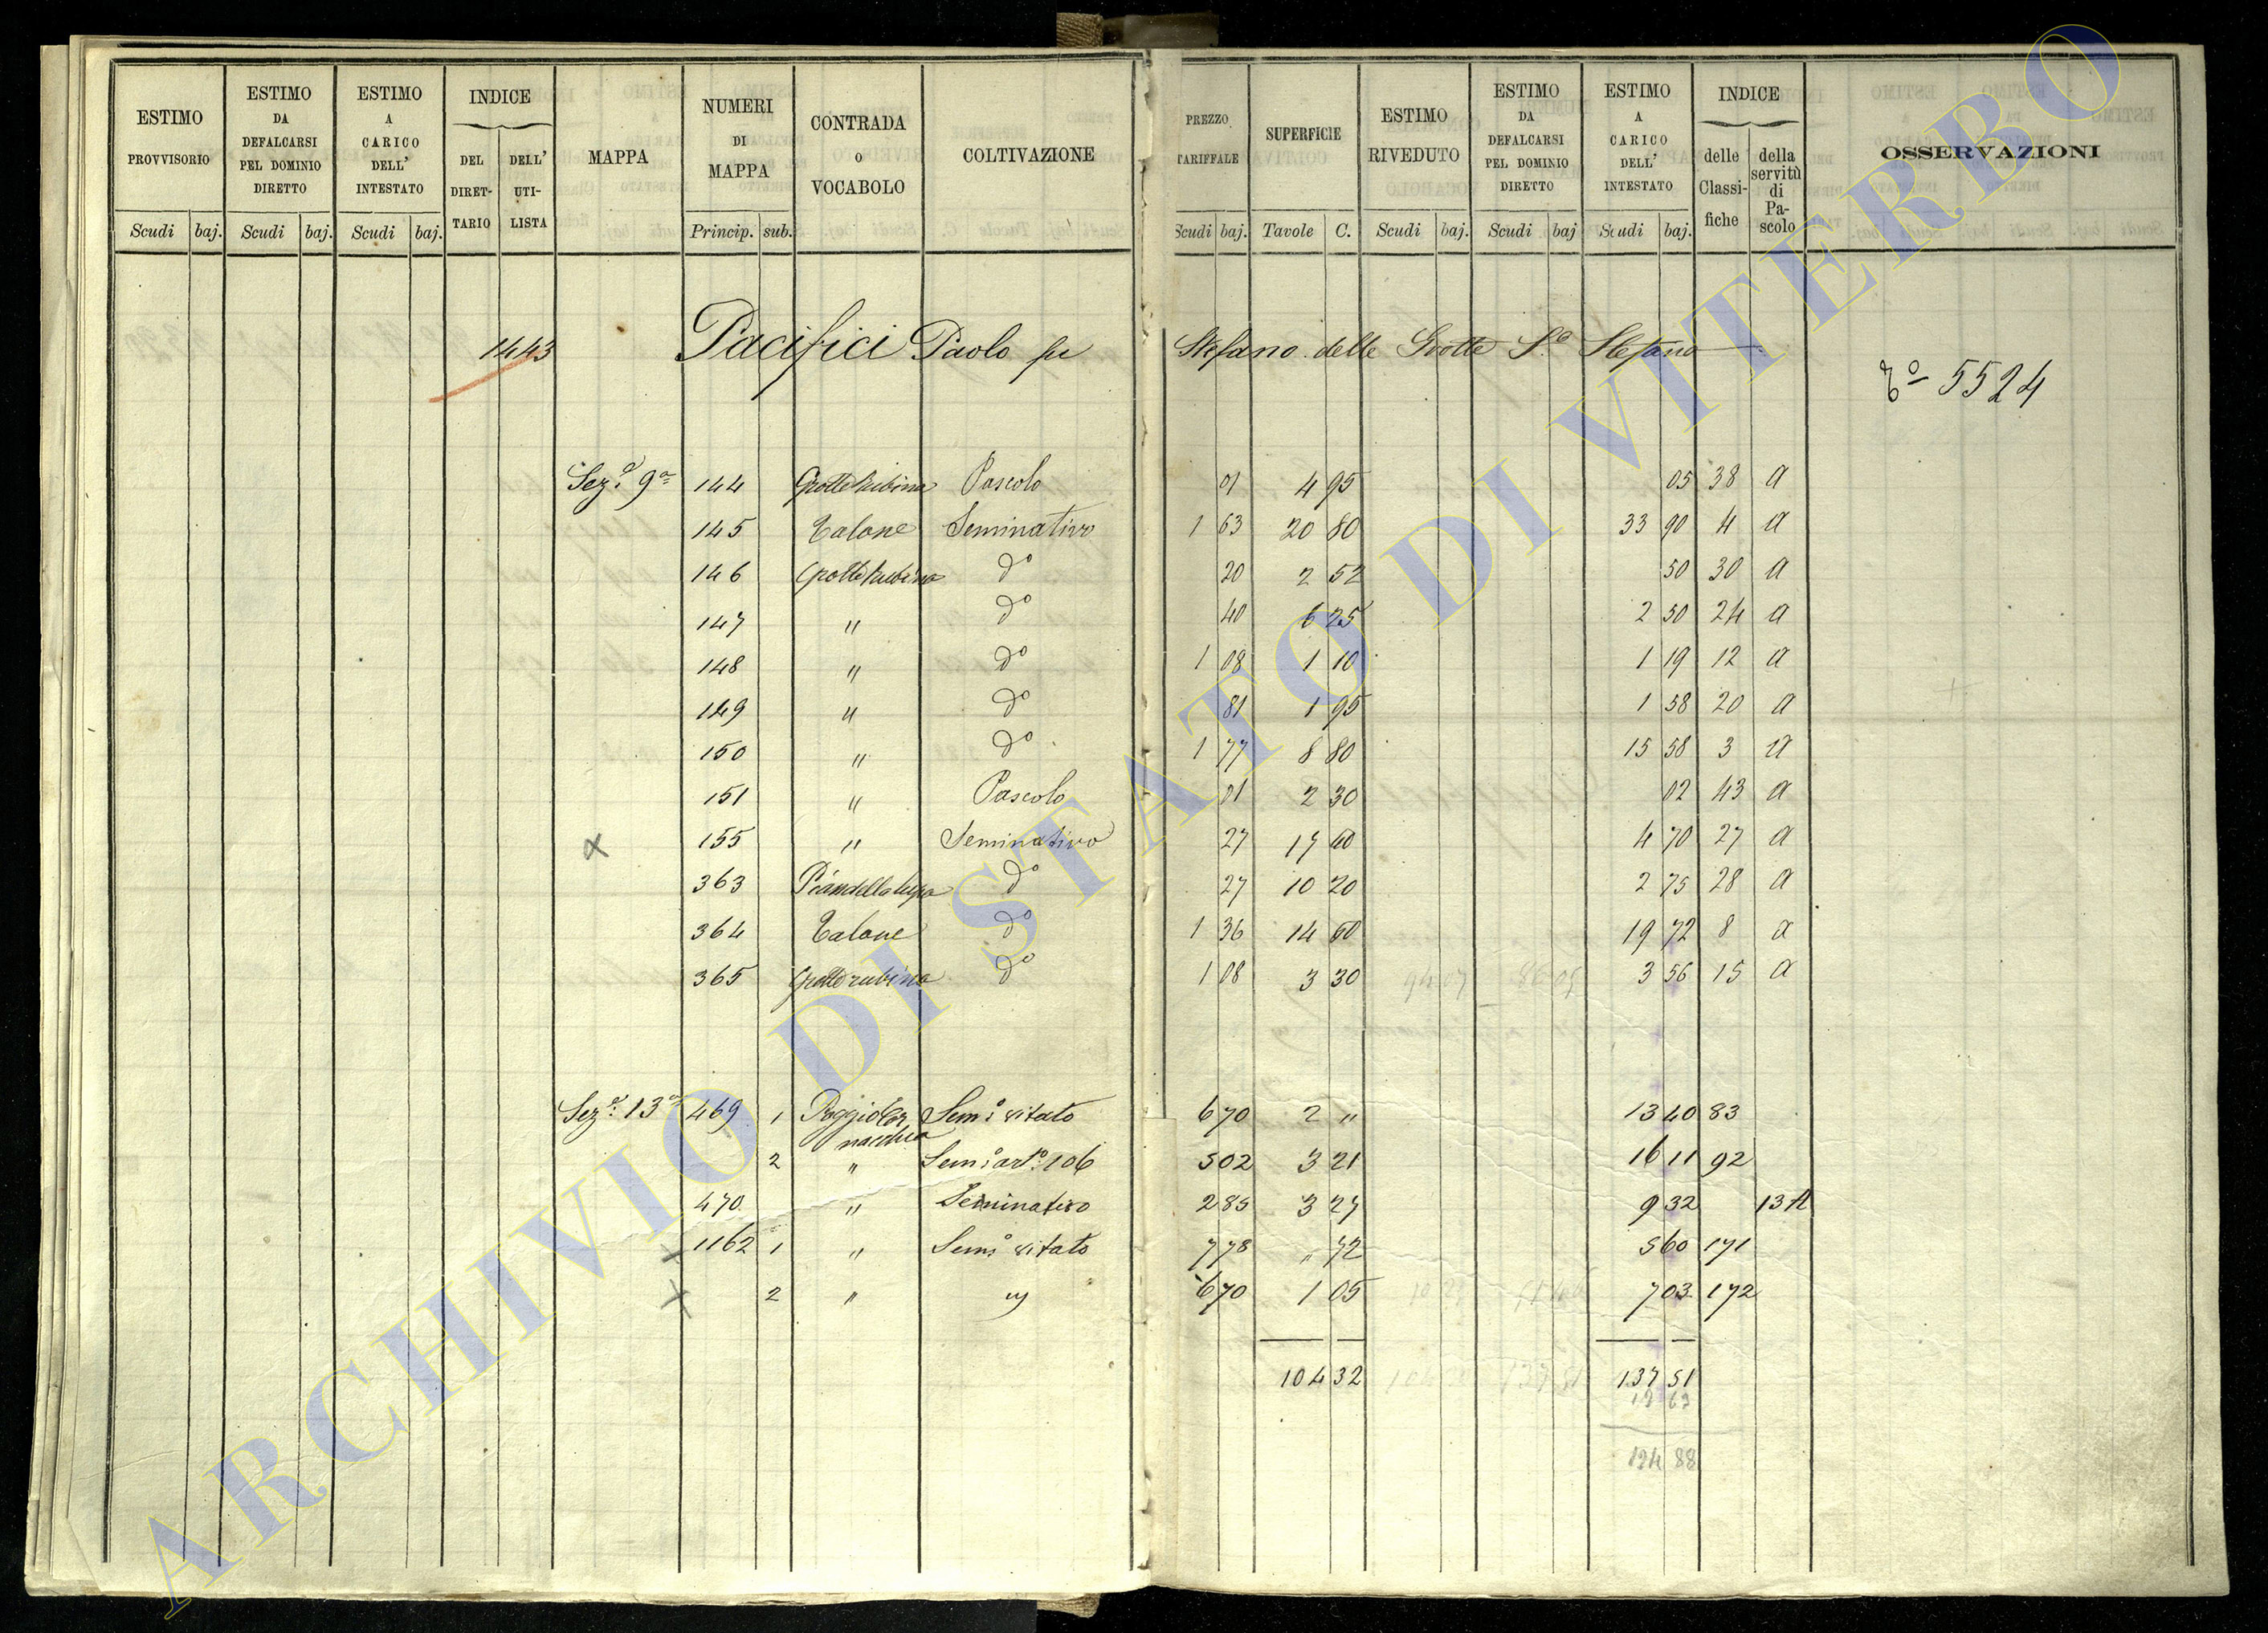 ESTIMO PROVVISORIO
ESTIMO DA DEFALCARSI PEL DOMINIO DIRETTO
ESTIMO A CARICO DELL' INTESTATO
INDICE
DEL DIRETTARIO
DELL' UTILISTA
MAPPA
NUMERI DI MAPPA
CONTRADA O VOCABOLO
COLTIVAZIONE
PREZZO TARIFFALE
SUPERFICIE
ESTIMO RIVEDUTO
ESTIMO DA DEFALCARSI PEL DOMINIO DIRETTO
ESTIMO A CARICO DELL' INTESTATO
INDICE
delle Classifiche
della servitù di Pascolo
OSSERVAZIONI
Scudi baj. Scudi baj. Scudi baj. Princip. sub. Scudi baj. Tavole C. Scudi baj. Scudi baj Scudi baj.
1443 Pacifici Paolo fu Stefano delle Grotte S.o Stefano
5524
Sez.a 9a 144 Grotte Rubina Pascolo 01 4 95 05 38 a
145 Talone Seminativo 1 63 20 80 33 90 4 a
146 Grotte Rubina do 20 2 52 50 30 a
147 " do 40 6 25 2 50 24 a
148 " do 1 08 1 10 1 19 12 a
149 " do 81 1 95 1 58 20 a
150 " do 1 77 8 80 15 58 3 a
151 " Pascolo 01 2 30 02 43 a
x 155 " Seminativo 27 17 40 4 70 27 a
363 Piandellalupa do 27 10 20 2 75 28 a
364 Talone do 1 36 14 50 19 72 8 a
365 Grotte rubina do 1 08 3 30 3 56 15 a
Sez.a 13a 469 1 Poggio Cornacchia Sem.o vitato 6 70 2 " 13 40 83
2 " Sem.o art.o 106 5 02 3 21 16 11 92
470 " Seminativo 2 85 3 27 9 32 13 A
x 1162 1 " Sem.o vitato 7 78 " 72 5 60 171
x 2 " " 6 70 1 05 7 03 172
104 32 137 51
12 63
124 88
ARCHIVIO DI STATO DI VITERBO